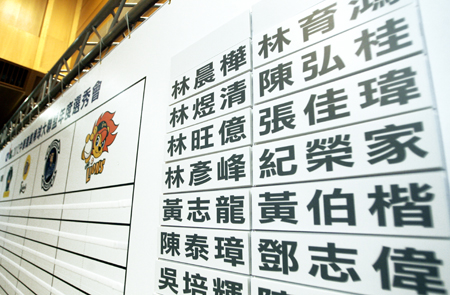 年度選秀會
林晨樺
林煜清
林旺億
林彥峰
黃志龍
陳泰璋
吳培輝
林育鴻
陳弘桂
張佳瑋
紀榮家
黃伯楷
鄧志偉